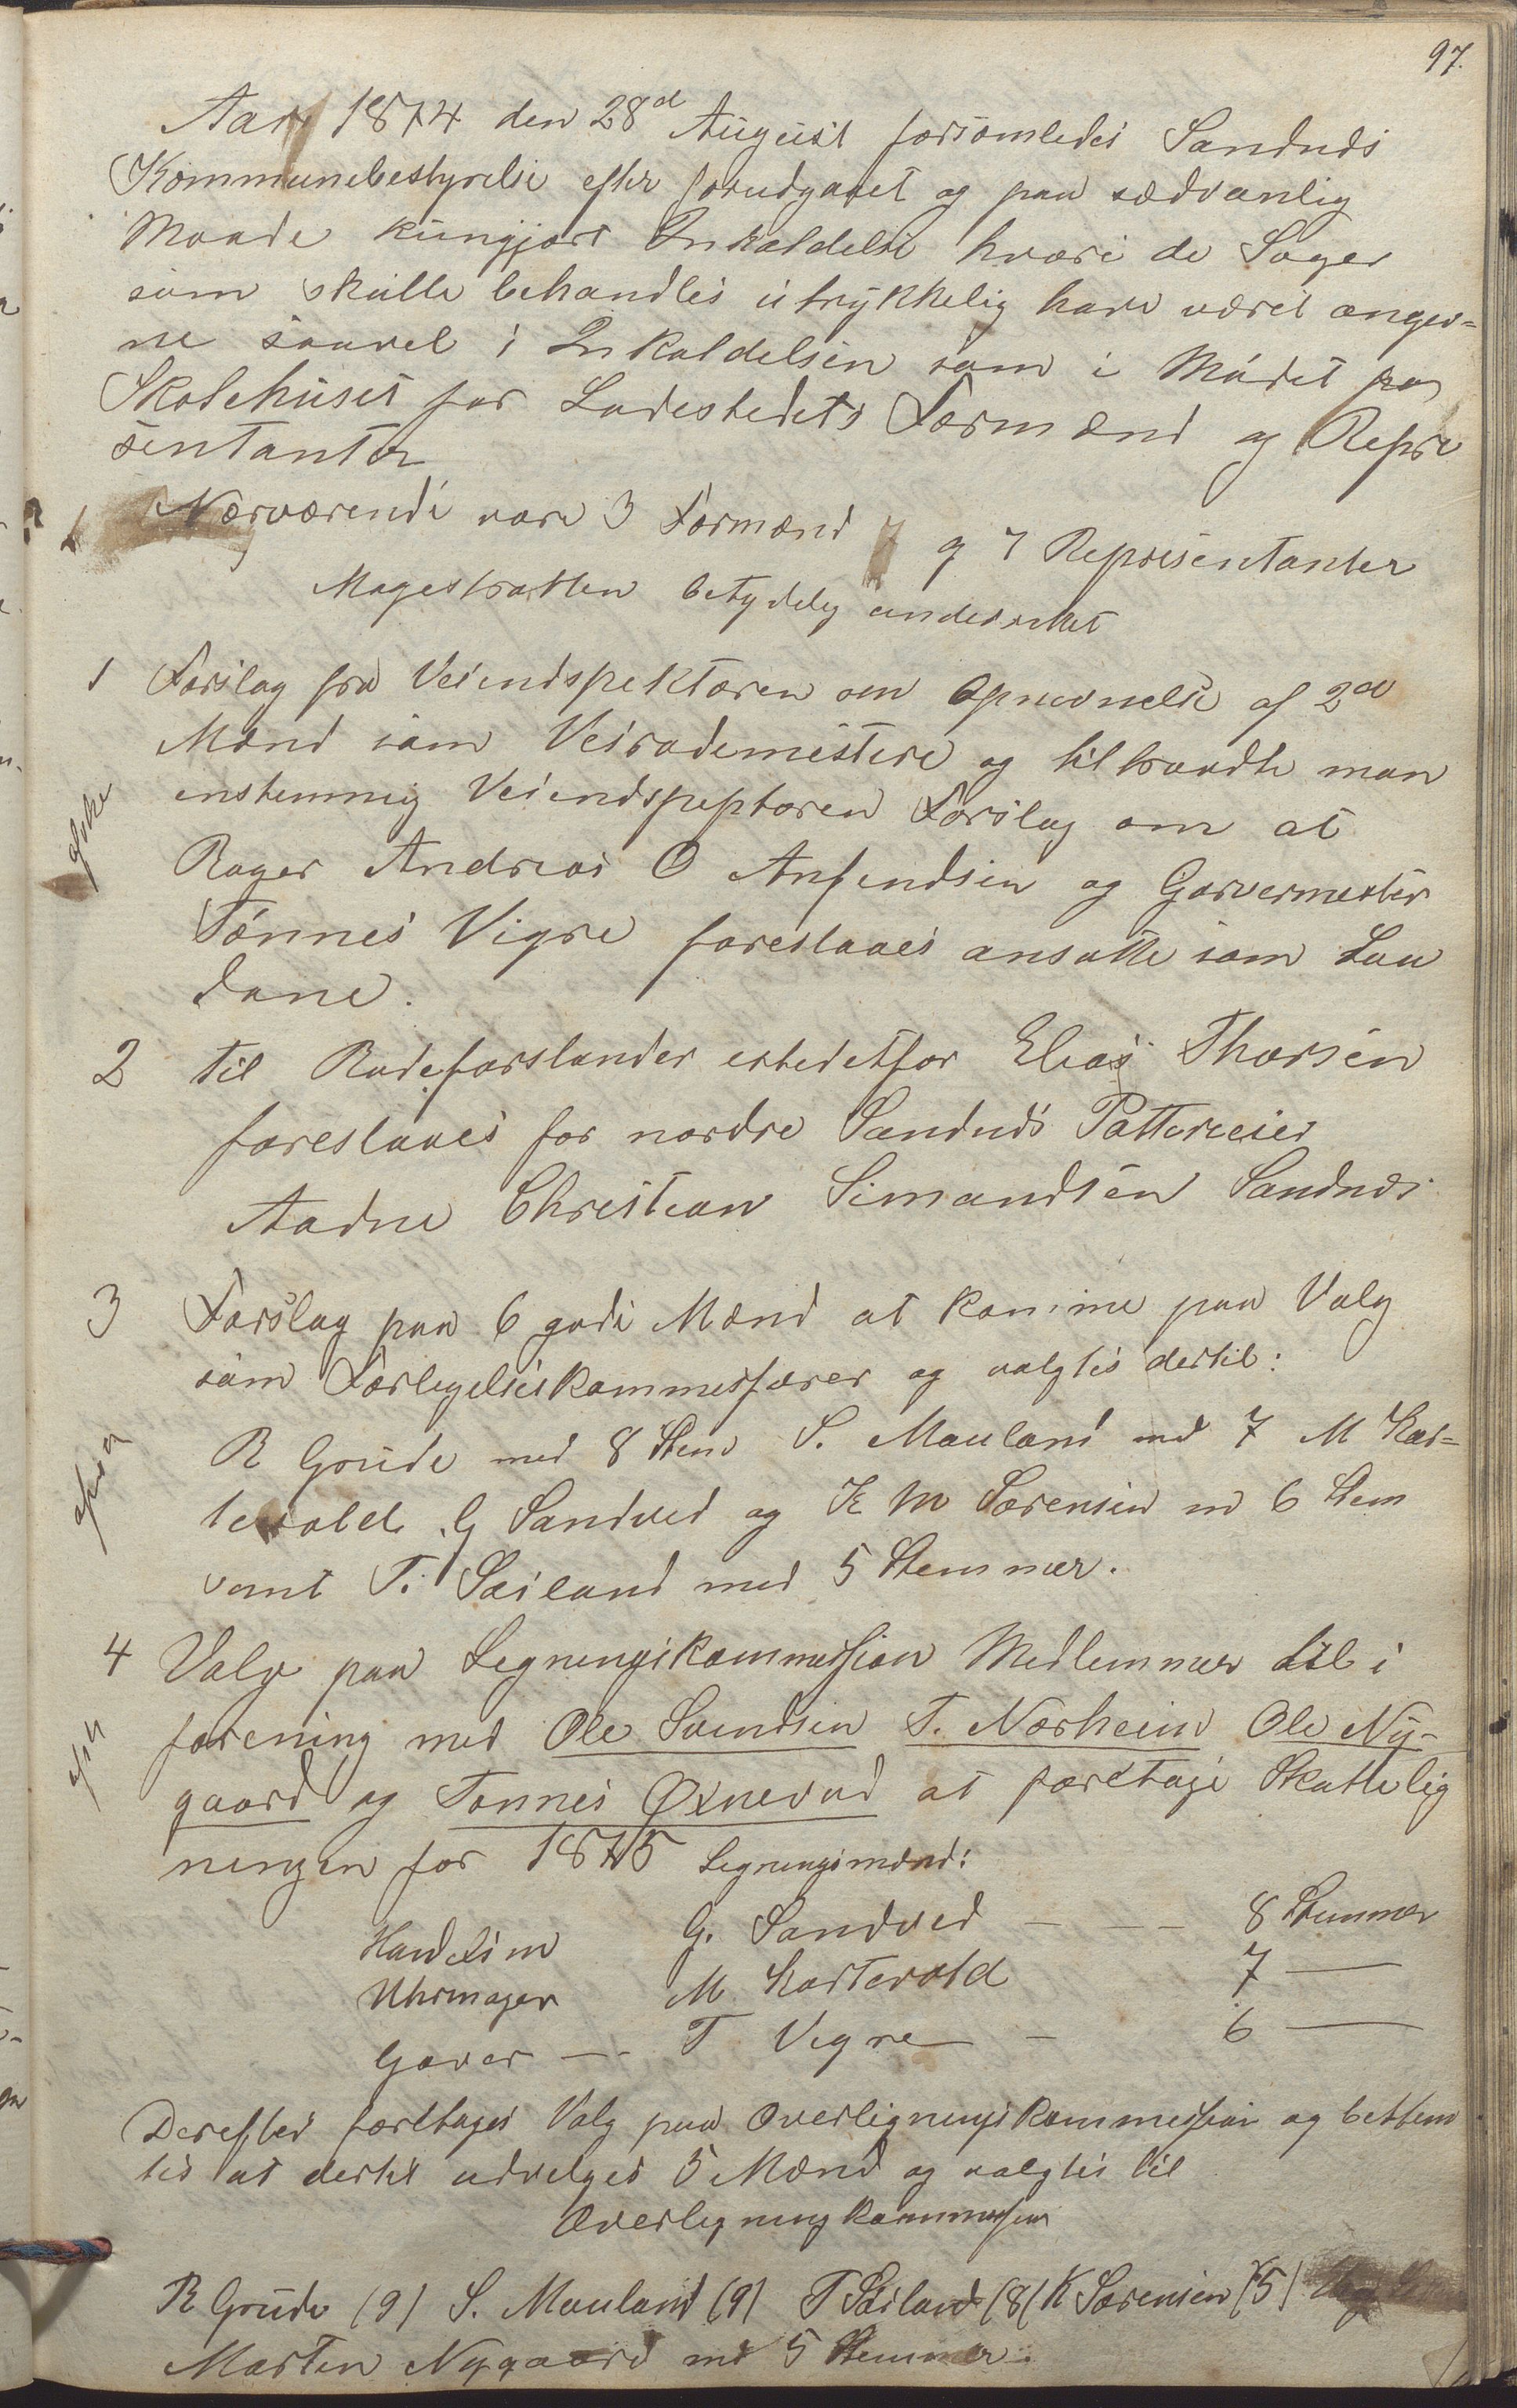 97.
Aar 1874 den 28d August forsamledes Sandnds
Kommunebestyrelse efter forudgaaet og paa sædvanlig
Maade kungjort Inkaldelse hvori de Sager
som skulle behandles utrykkelig have været angiv=
ne saavel i Inkaldelsen som i Mødet paa
Skolehuset for Ladestedets Formænd og Repre
sentanter
Nærværende vare 3 Formænd og 7 Representanter
Magestratten betydelig
1 Forslag fra Veiendspektøren om Opnevnelse af 2de
Mænd som Veirodemestere og tiltraadte man
enstemmig Veiendspeptøren Forslag om at
Bager Andreas O Anfendsen og Garvermester
Tønnes Vigre foreslaaes ansatte som Saa
dane.
2 til Rodeforstander estedetfor Elias Thorsen
foreslaaes for nordre Sandnds Potterieier
Aadne Christian Simondsen Sandnds
3 Forslag paa 6 gode Mænd at komme paa Valg
som Forligelseskommesærer og valgtes dertil:
R Grude med 8 Stem S. Mauland med 7 M Kar=
tevold G Sandved og K M Sørensen m 6 Stem
samt T. Seiland med 5 Stemmer.
4 Valg paa Legningskommession Medlemmer til i
forening med Ole Svendsen T. Norheim Ole Ny-
gaard og Tønnes Øxnevad at foretage Skattelig
ningen for 1875 Legningsmænd:
Handelsm G. Sandved — — — 8 Stemmer
Uhrmager M. Kartevold 7 —
Gaver — T Vegre — 6 —
Derefter foretages Valg paa Overligningskommession og bestem
tes at dertil udvelges 5 Mænd og valgtes til
Overligningkommession
R Grude (9) S. Mauland (9) T Seiland (8) K Sørensen (5)
Morten Nygaard md 5 Stemmer.